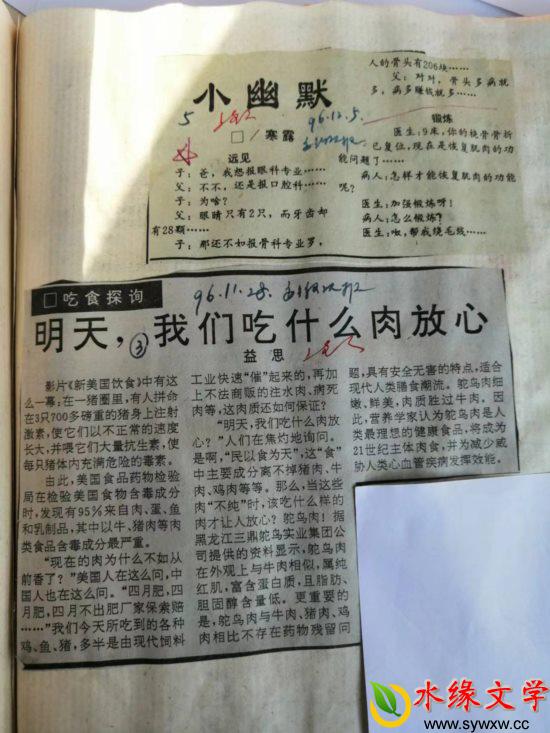 小幽默
5
96.12.5.
□/寒露
远见
子：爸，我想报眼科专业……
父：不不，还是报口腔科……
子：为啥？
父：眼睛只有2只，而牙齿却
有28颗……
子：那还不如报骨科专业罗，
人的骨头有206块……
父：对对，骨头多病就
多，病多赚钱就多……
锻炼
医生：9床，你的挠骨骨折
已复位，现在是恢复肌肉的功
能问题了……
病人：怎样才能恢复肌肉的功能
呢？
医生：加强锻炼呀！
病人：怎么锻炼？
医生：呶，帮我绕毛线……
□吃食探询
96.11.28.
明天，我们吃什么肉放心
③
益思
影片《新美国饮食》中有这
么一幕，在一猪圈里，有人拼命
在3只700多磅重的猪身上注射
激素，使它们以不正常的速度
长大，并喂它们大量抗生素，使
每只猪体内充满危险的毒素。
由此，美国食品药物检验
局在检验美国食物含毒成分
时，发现有95％来自肉、蛋、鱼
和乳制品，其中以牛、猪肉等肉
类食品含毒成分最严重。
“现在的肉为什么不如从
前香了？”美国人在这么问，中
国人也在这么问。“四月肥，四
月肥，四月不出肥厂家保索赔
……”我们今天所吃到的各种
鸡、鱼、猪，多半是由现代饲料
工业快速“催”起来的，再加
上不法商贩的注水肉、病死
肉等，这肉质还如何保证？
“明天，我们吃什么肉放
心？”人们在焦灼地询问。
是啊，“民以食为天”，这“食”
中主要成分离不掉猪肉、牛
肉、鸡肉等等。那么，当这些
肉“不纯”时，该吃什么样的
肉才让人放心？鸵鸟肉！据
黑龙江三鼎鸵鸟实业集团公
司提供的资料显示，鸵鸟肉
在外观上与牛肉相似，属纯
红肌，富含蛋白质，且脂肪、
胆固醇含量低。更重要的
是，鸵鸟肉与牛肉、猪肉、鸡
肉相比不存在药物残留问
题，具有安全无害的特点，适合
现代人类膳食潮流。鸵鸟肉细
嫩，鲜美，肉质胜过牛肉。因
此，营养学家认为鸵鸟肉是人
类最理想的健康食品，将成为
21世纪主体肉食，并为减少威
胁人类心血管疾病发挥效能。
水缘文学
www.sywxw.cc